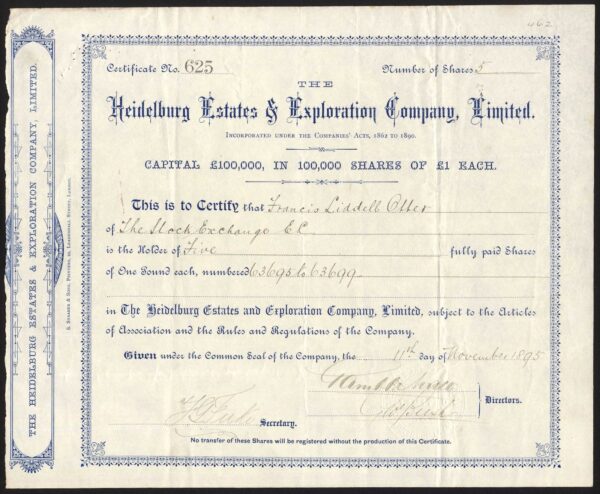 462
Certificate No. 625
Number of Shares 5
THE
Heidelburg Estates & Exploration Company, Limited.
INCORPORATED UNDER THE COMPANIES' ACTS, 1862 TO 1890.
CAPITAL £100,000, IN 100,000 SHARES OF £1 EACH.
This is to Certify that Francis Liddell Otter
of The Stock Exchange E C
is the Holder of Five fully paid Shares
of One Pound each, numbered 63695 to 63699
in The Heidelburg Estates and Exploration Company, Limited, subject to the Articles
of Association and the Rules and Regulations of the Company.
Given under the Common Seal of the Company, the 11th day of November 1895
Directors.
Secretary.
No transfer of these Shares will be registered without the production of this Certificate.
THE HEIDELBURG ESTATES & EXPLORATION COMPANY, LIMITED.